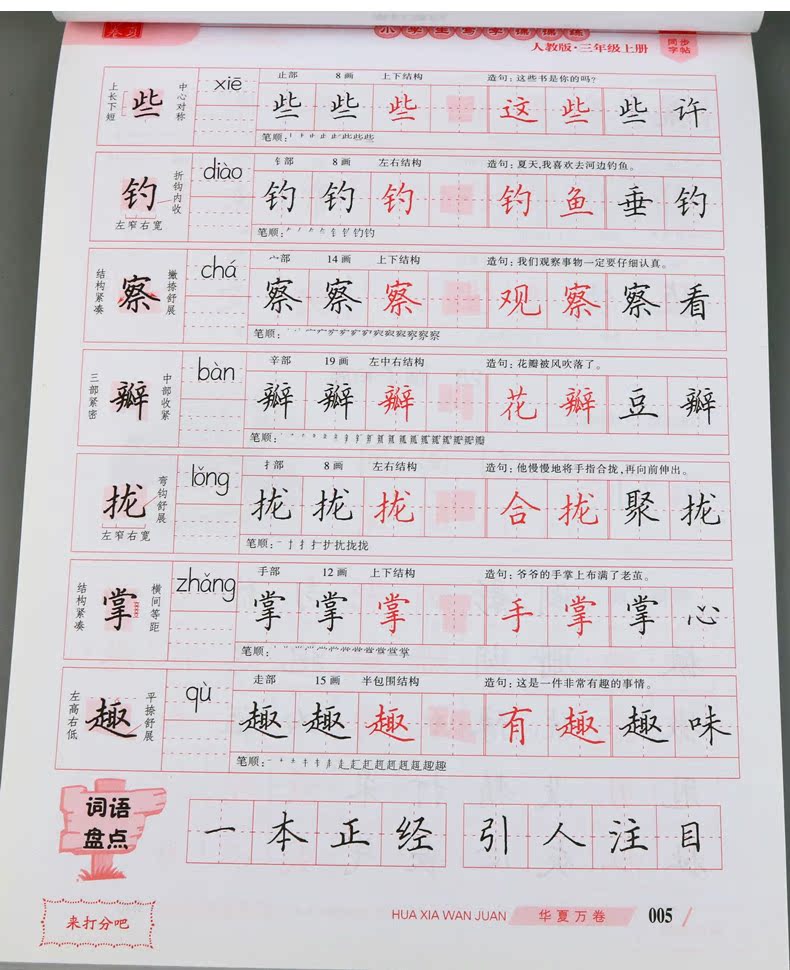 小学生写字课课练
人教版·三年级上册
同步
字帖
上长下短
些
中心对称
xiē
止部 8画 上下结构 造句：这些书是你的吗？
些 些 些 这 些 些 许
笔顺：
钓
折钩内收
左窄右宽
diào
钅部 8画 左右结构 造句：夏天,我喜欢去河边钓鱼。
钓 钓 钓 钓 鱼 垂 钓
笔顺：
结构紧凑
察
撇捺舒展
chá
宀部 14画 上下结构 造句：我们观察事物一定要仔细认真。
察 察 察 观 察 察 看
笔顺：
三部紧密
瓣
中部收紧
bàn
辛部 19画 左中右结构 造句：花瓣被风吹落了。
瓣 瓣 瓣 花 瓣 豆 瓣
笔顺：
拢
弯钩舒展
左窄右宽
lǒng
扌部 8画 左右结构 造句：他慢慢地将手指合拢,再向前伸出。
拢 拢 拢 合 拢 聚 拢
笔顺：
结构紧凑
掌
横间等距
zhǎng
手部 12画 上下结构 造句：爷爷的手掌上布满了老茧。
掌 掌 掌 手 掌 掌 心
笔顺：
左高右低
趣
平捺舒展
qù
走部 15画 半包围结构 造句：这是一件非常有趣的事情。
趣 趣 趣 有 趣 趣 味
笔顺：
词语
盘点
一本正经 引人注目
来打分吧
HUA XIA WAN JUAN 华夏万卷 005